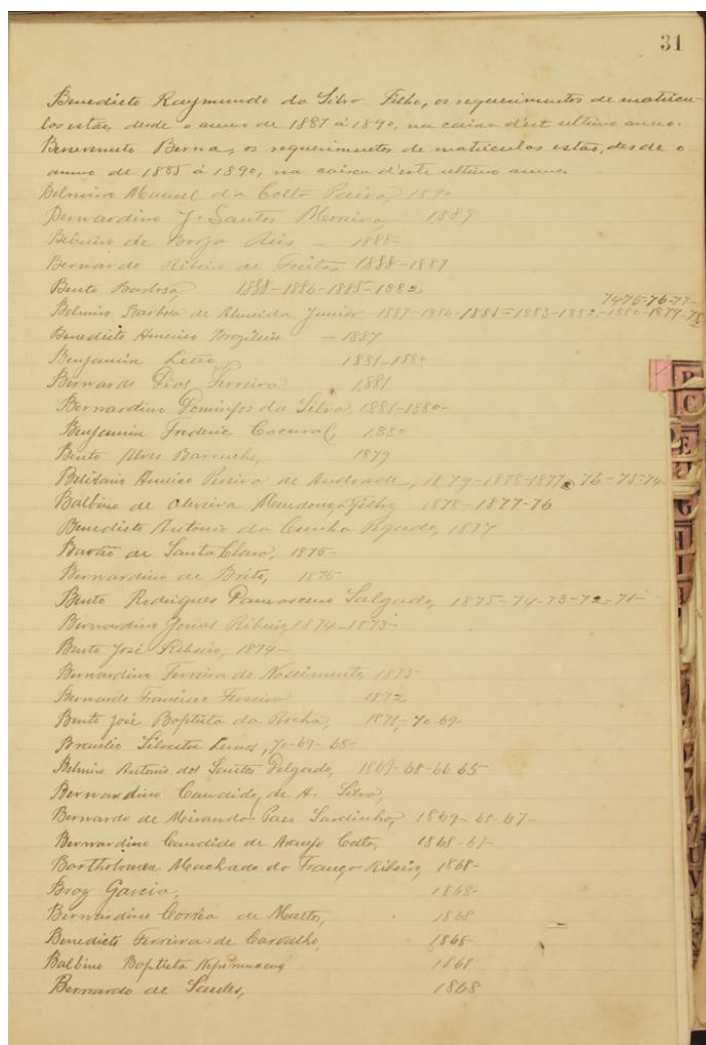 31
Benedicto Raymundo da Silva Filho, os requerimentos de matricu-
las estão, desde o anno de 1887 á 1890, na caixa d'est ultimo anno.
Benevenuto Berna, os requerimentos de matriculas estão, desde o
anno de 1885 á 1890, na caixa d'este ultimo anno.
Belmiro Manuel da Costa Paiva, 1890
Bernardino J. Santos Moreira, 1889
de Borja Reis - 1888-
Bernardo Ribeiro de Freitas 1888-1887
Bento Barbosa 1888-1886-1885-1882
7475-76-77-
Belmiro Barbosa de Almeida Junior -1887-1886-1885=1883-1882-1880-1879-78
Benedicto Americo Brazileiro - 1887
Benjamin Leão 1881-1880
Bernardo Dias Ferreira 1881
Bernardino Domingos da Silva 1881-1880-
Benjamin Frederic 1880
Bento Alves 1879
Americo Pereira de Andrade, 1879-1878-1877-76-75-74-
Balbino de Oliveira Mendonça 1878-1877-76
Benedicto Antonio da Cunha 1877
Barão de Santa Clara, 1875-
Bernardino de Brito, 1875
Bento Rodrigues Damasceno Salgado, 1875-74-73-72-71-
Bernardino Jonas Ribeiro, 1874-1873-
Bento José Ribeiro, 1874-
Bernardino Ferreira do Nascimento, 1873
Bernardo Francisco Ferreira 1872
Bento José Baptista da Rocha, 1871-70-69-
Braulio Silvestre Lemos, 70-69-68-
Antonio dos Santos Delgado, 1869-68-66-65
Bernardino Candido, de A. Silva,
Bernardo de Miranda Paes Sardinha, 1869-68-67-
Bernardino Candido de Araujo Costa, 1868-67-
Bartholomeu Machado da França Ribeiro, 1868-
Braz Garcia, 1868-
Bernardino Corrêa de Mattos, 1868
Benedicto Ferreira de Carvalho, 1868-
Balbino Baptista 1868
Bernardo de 1868
B
C
E
G
H
I
U
V